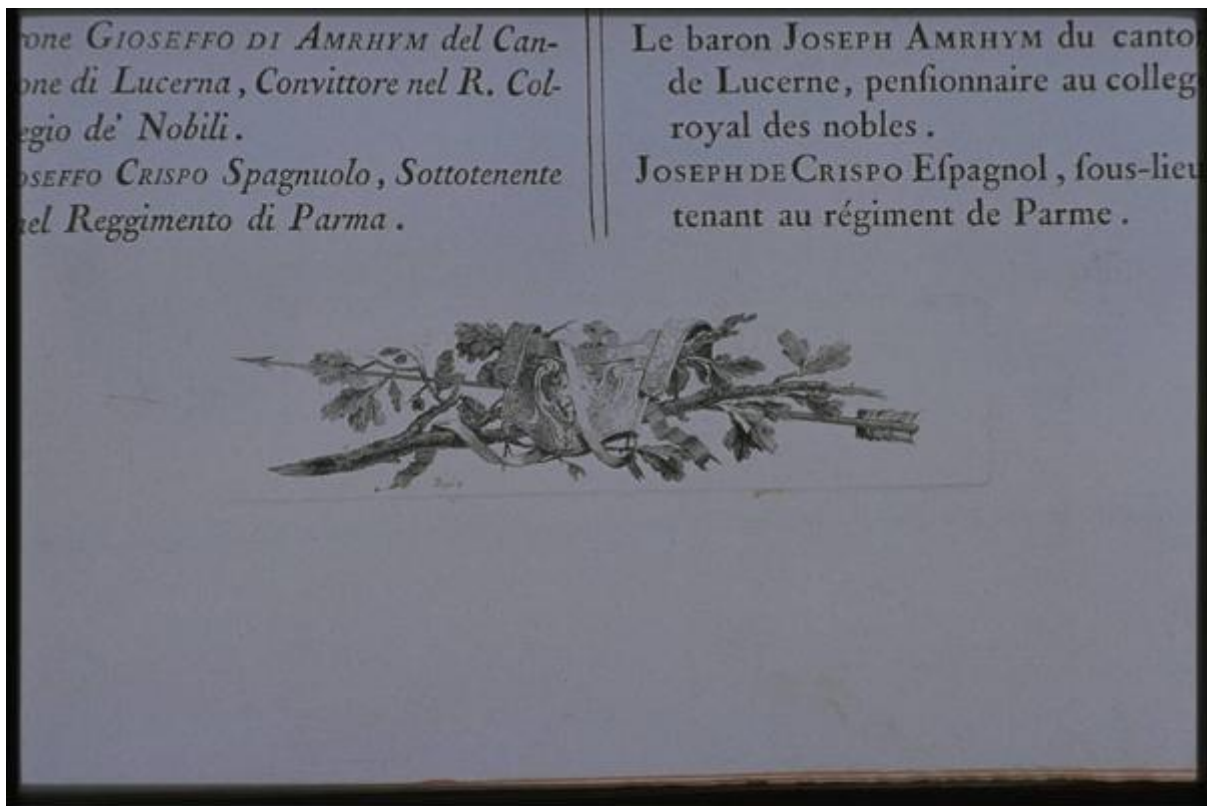 GIOSEFFO DI AMRHYM del Can-
di Lucerna, Convittore nel R. Col-
de' Nobili.
CRISPO Spagnuolo, Sottotenente
Reggimento di Parma.
Le baron JOSEPH AMRHYM du canto
de Lucerne, penſionnaire au colleg
royal des nobles.
JOSEPH DE CRISPO Eſpagnol, ſous-lieu
tenant au régiment de Parme.